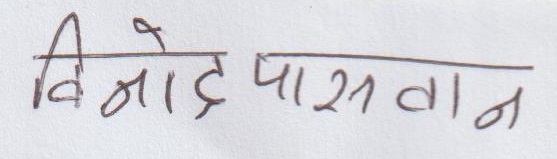 विनोद पासवान